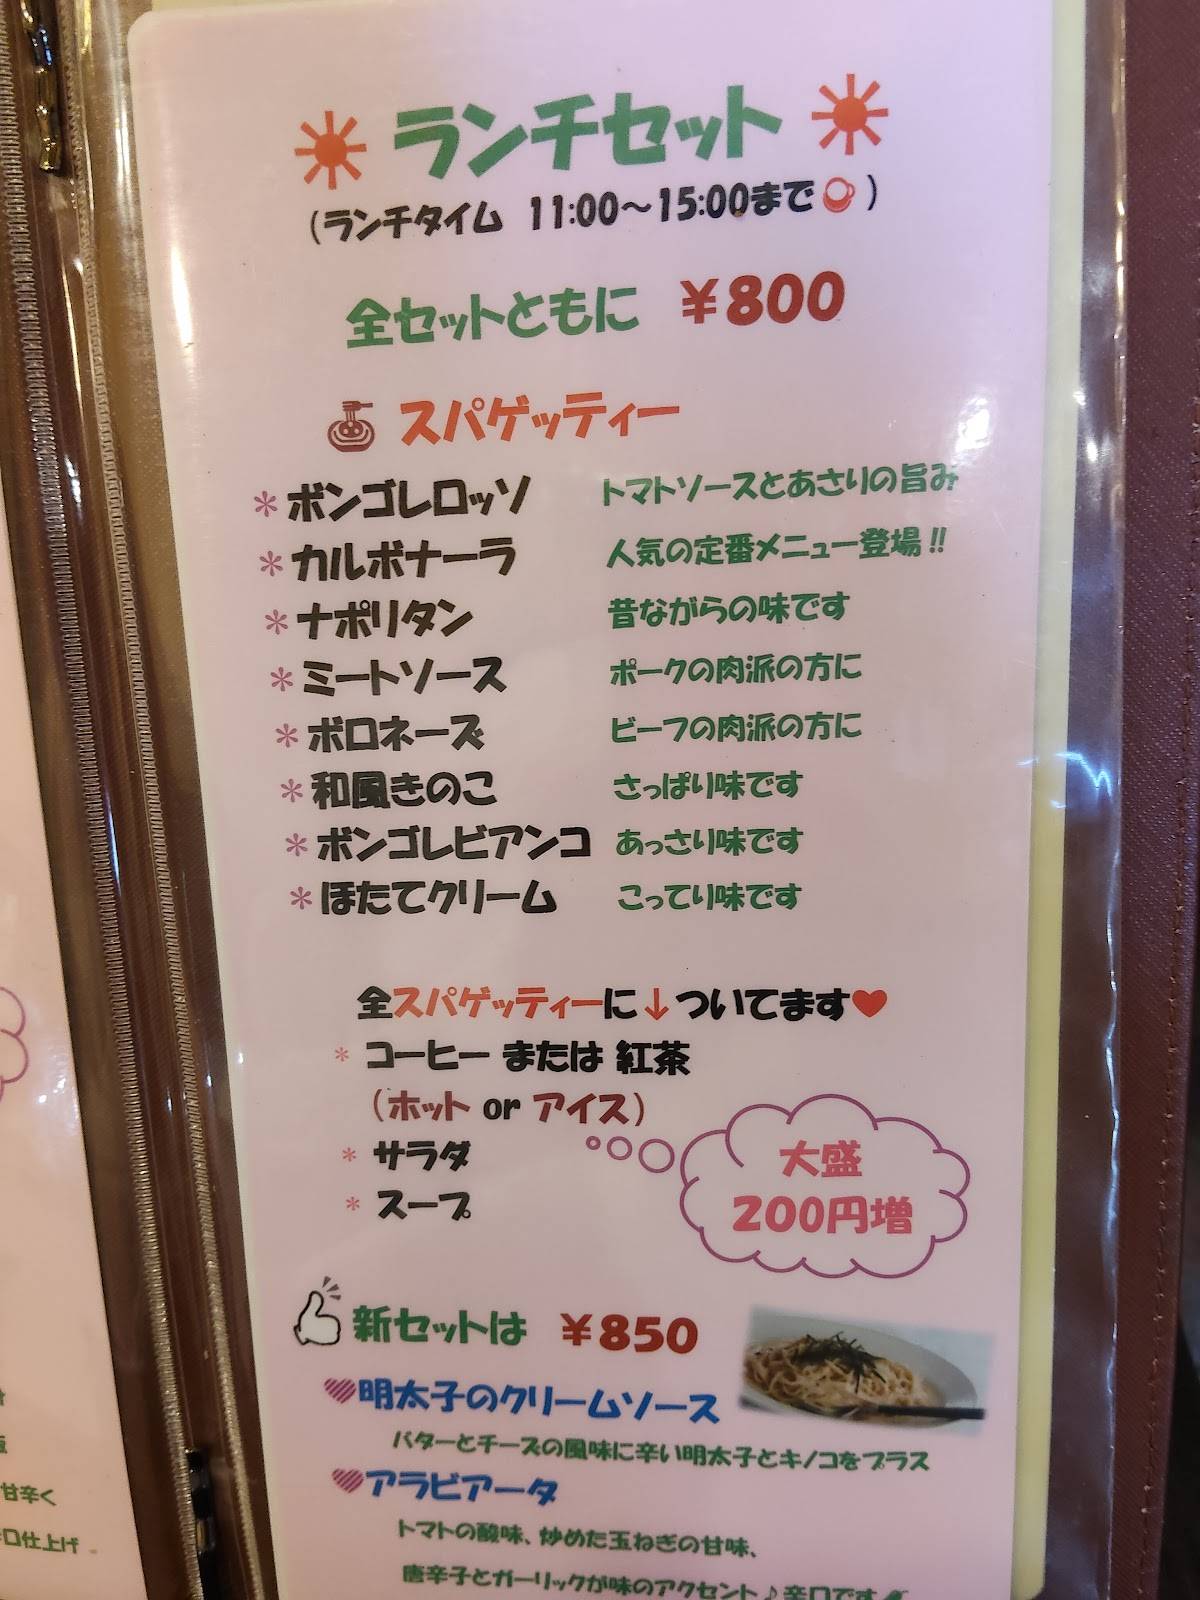 ランチセット
(ランチタイム 11:00～15:00まで)
全セットともに ￥800
スパゲッティー
＊ボンゴレロッソ トマトソースとあさりの旨み
＊カルボナーラ 人気の定番メニュー登場!!
＊ナポリタン 昔ながらの味です
＊ミートソース ポークの肉派の方に
＊ボロネーズ ビーフの肉派の方に
＊和風きのこ さっぱり味です
＊ボンゴレビアンコ あっさり味です
＊ほたてクリーム こってり味です
全スパゲッティーに↓ついてます♥
＊ コーヒー または 紅茶
(ホット or アイス)
＊ サラダ
＊ スープ
大盛
200円増
新セットは ￥850
明太子のクリームソース
バターとチーズの風味に辛い明太子とキノコをプラス
アラビアータ
トマトの酸味、炒めた玉ねぎの甘味、
唐辛子とガーリックが味のアクセント♪辛口です
甘辛く
口仕上げ